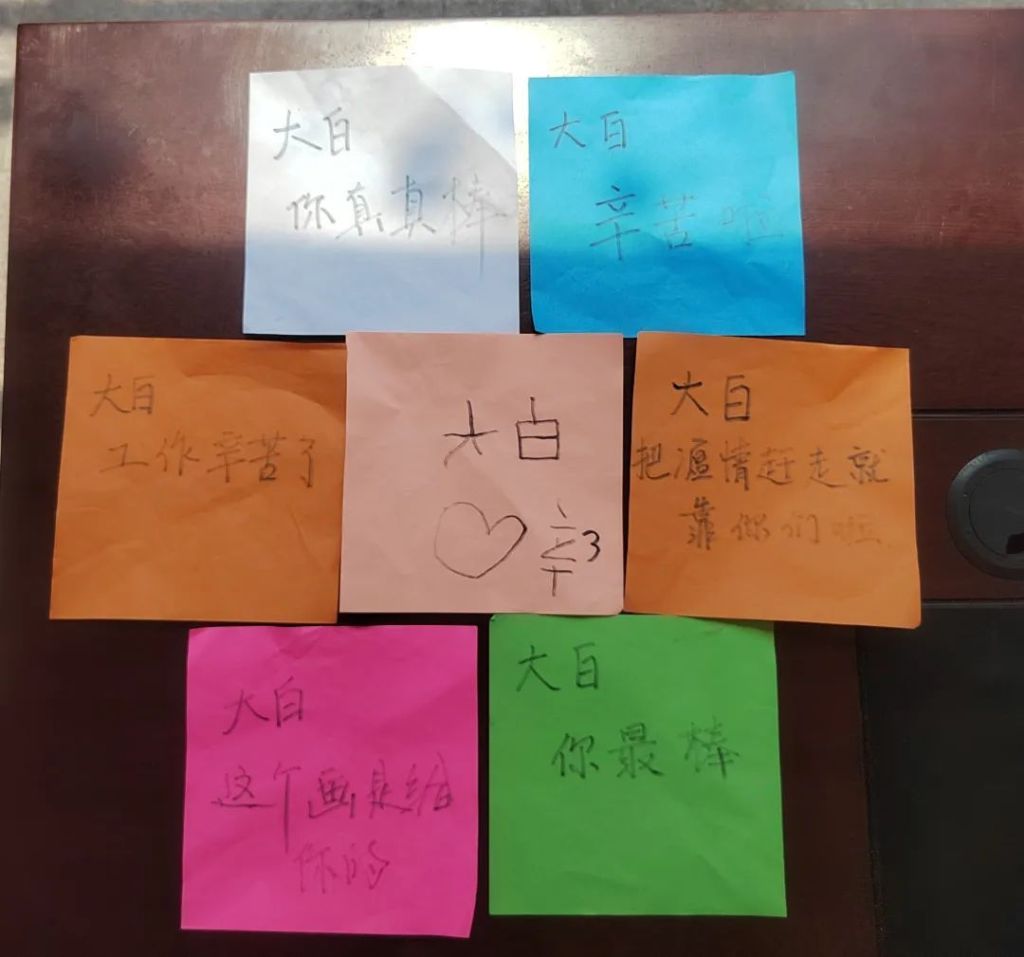 大白
你真真棒
大白
辛苦啦
大白
工作辛苦了
大白
辛3
大白
把瘟情赶走就
靠你们啦
大白
这个画是给
你的
大白
你最棒